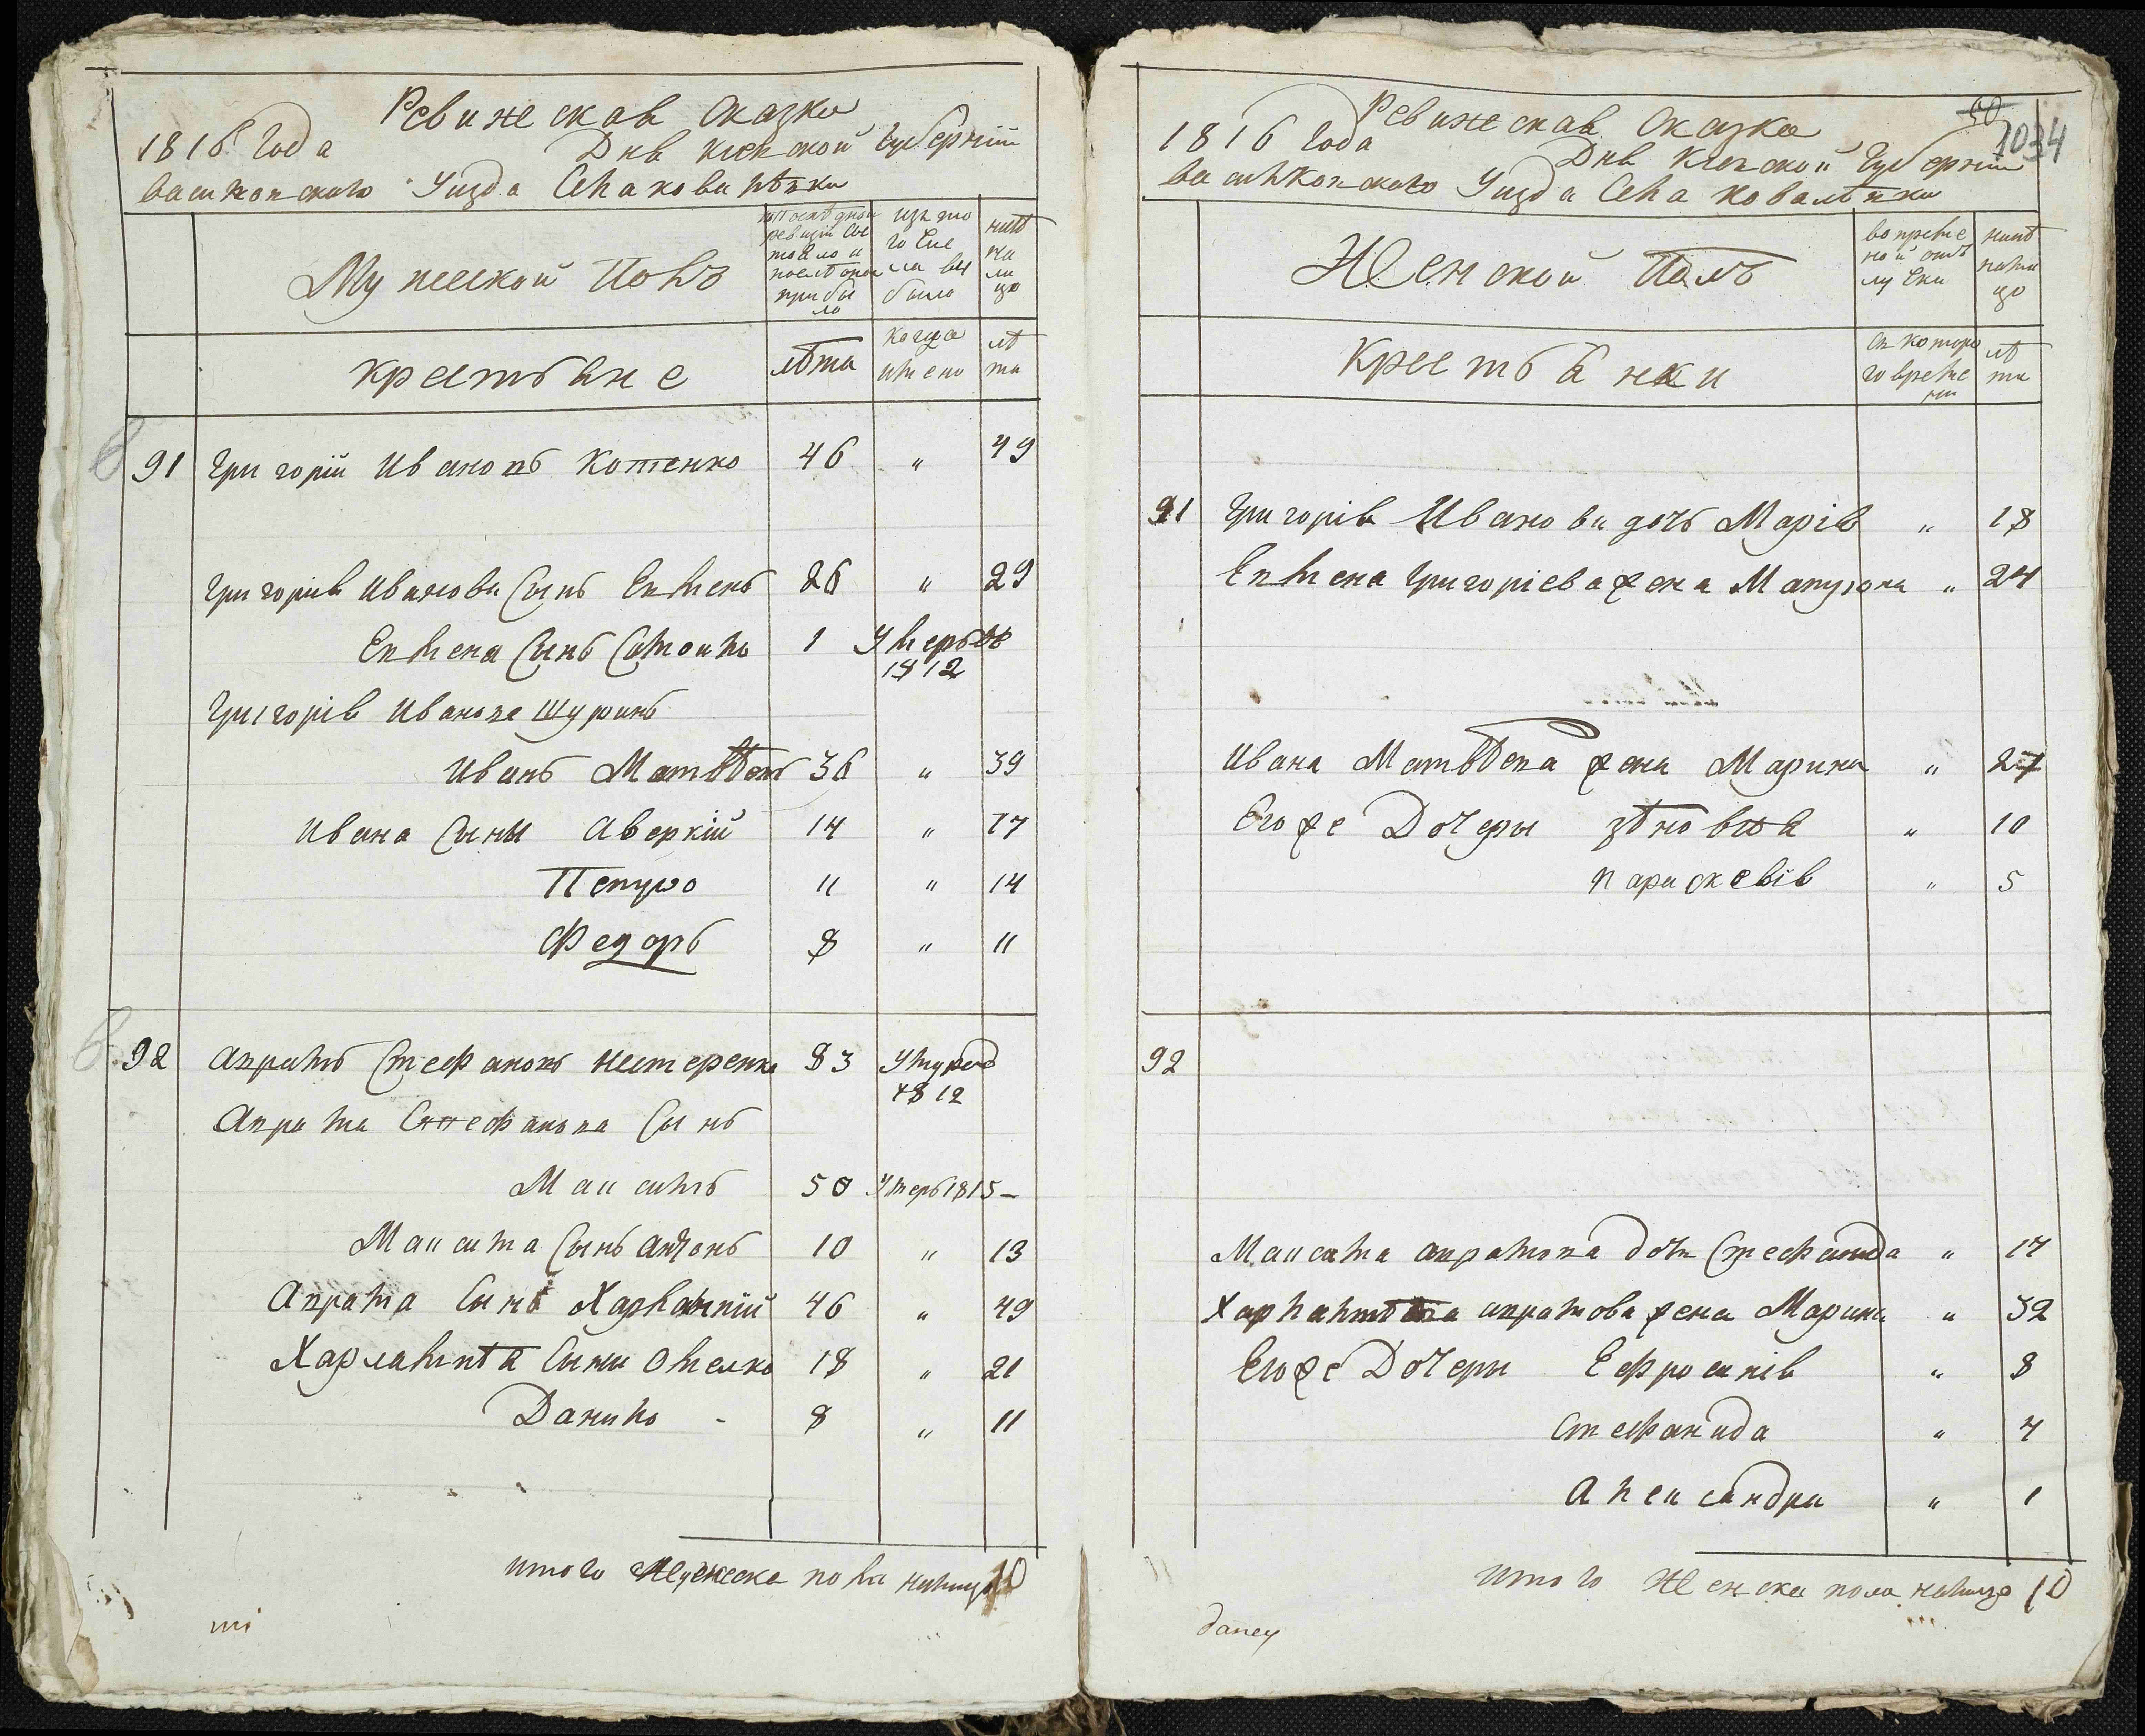 Ревижская Сказка
1816 Года Дня Киевской Губерніи
Васильковского Уизда Села Ковалѣвки
Мужеской Полъ
По послѣдной ревизіи состояло и послѣ оной прибыло
Изъ того числа выбыло
Нинѣ на лицо
Крестьяне
лѣта
когда имено
лѣта
91 Григорій Ивановъ Котенко 46 " 49
Григорія Иванова Сынъ Евменъ 26 " 29
Евмена Сынъ Самоило 1 Умеръ въ
1812
Григорія Иванова шуринъ
Иванъ Матвѣевъ 36 " 39
Ивана Сыны Аверкій 14 " 17
Петро 11 " 14
Федоръ 8 " 11
92 Авратъ Стефановъ Нестеренко 83
1812
Аврама Стефанова Сынъ
Маисимъ 50 Умеръ 1815 -
Маисима Сынъ Антонъ 10 " 13
Аврама Сынъ Харлампій 46 " 49
Харлампія Сыни Омелко 18 " 21
Данило - 8 " 11
итого Мужеска пола налицо 10
Ревижская Сказка
50
1034
1816 Года Дня Киевской Губерніи
Васильковского Уизда Села Ковалѣвки
Женской Полъ
Во временой отлучки
Нинѣ налицо
Крестьянки
съ которого времени
лѣта
91 Григорія Иванова дочь Марія " 18
Евмена Григоріева жена Мотрона " 24
Ивана Матвѣева жена Марина " 27
Его же Дочеры Зѣновия " 10
Парискевія " 5
92
Маисима Аврамова дочь Стефанида " 17
Харлампія Аврамова жена Марина " 32
Его же Дочеры Ефросинія " 8
Стефанида " 4
Алеисандра " 1
Итого Женска пола налицо 10